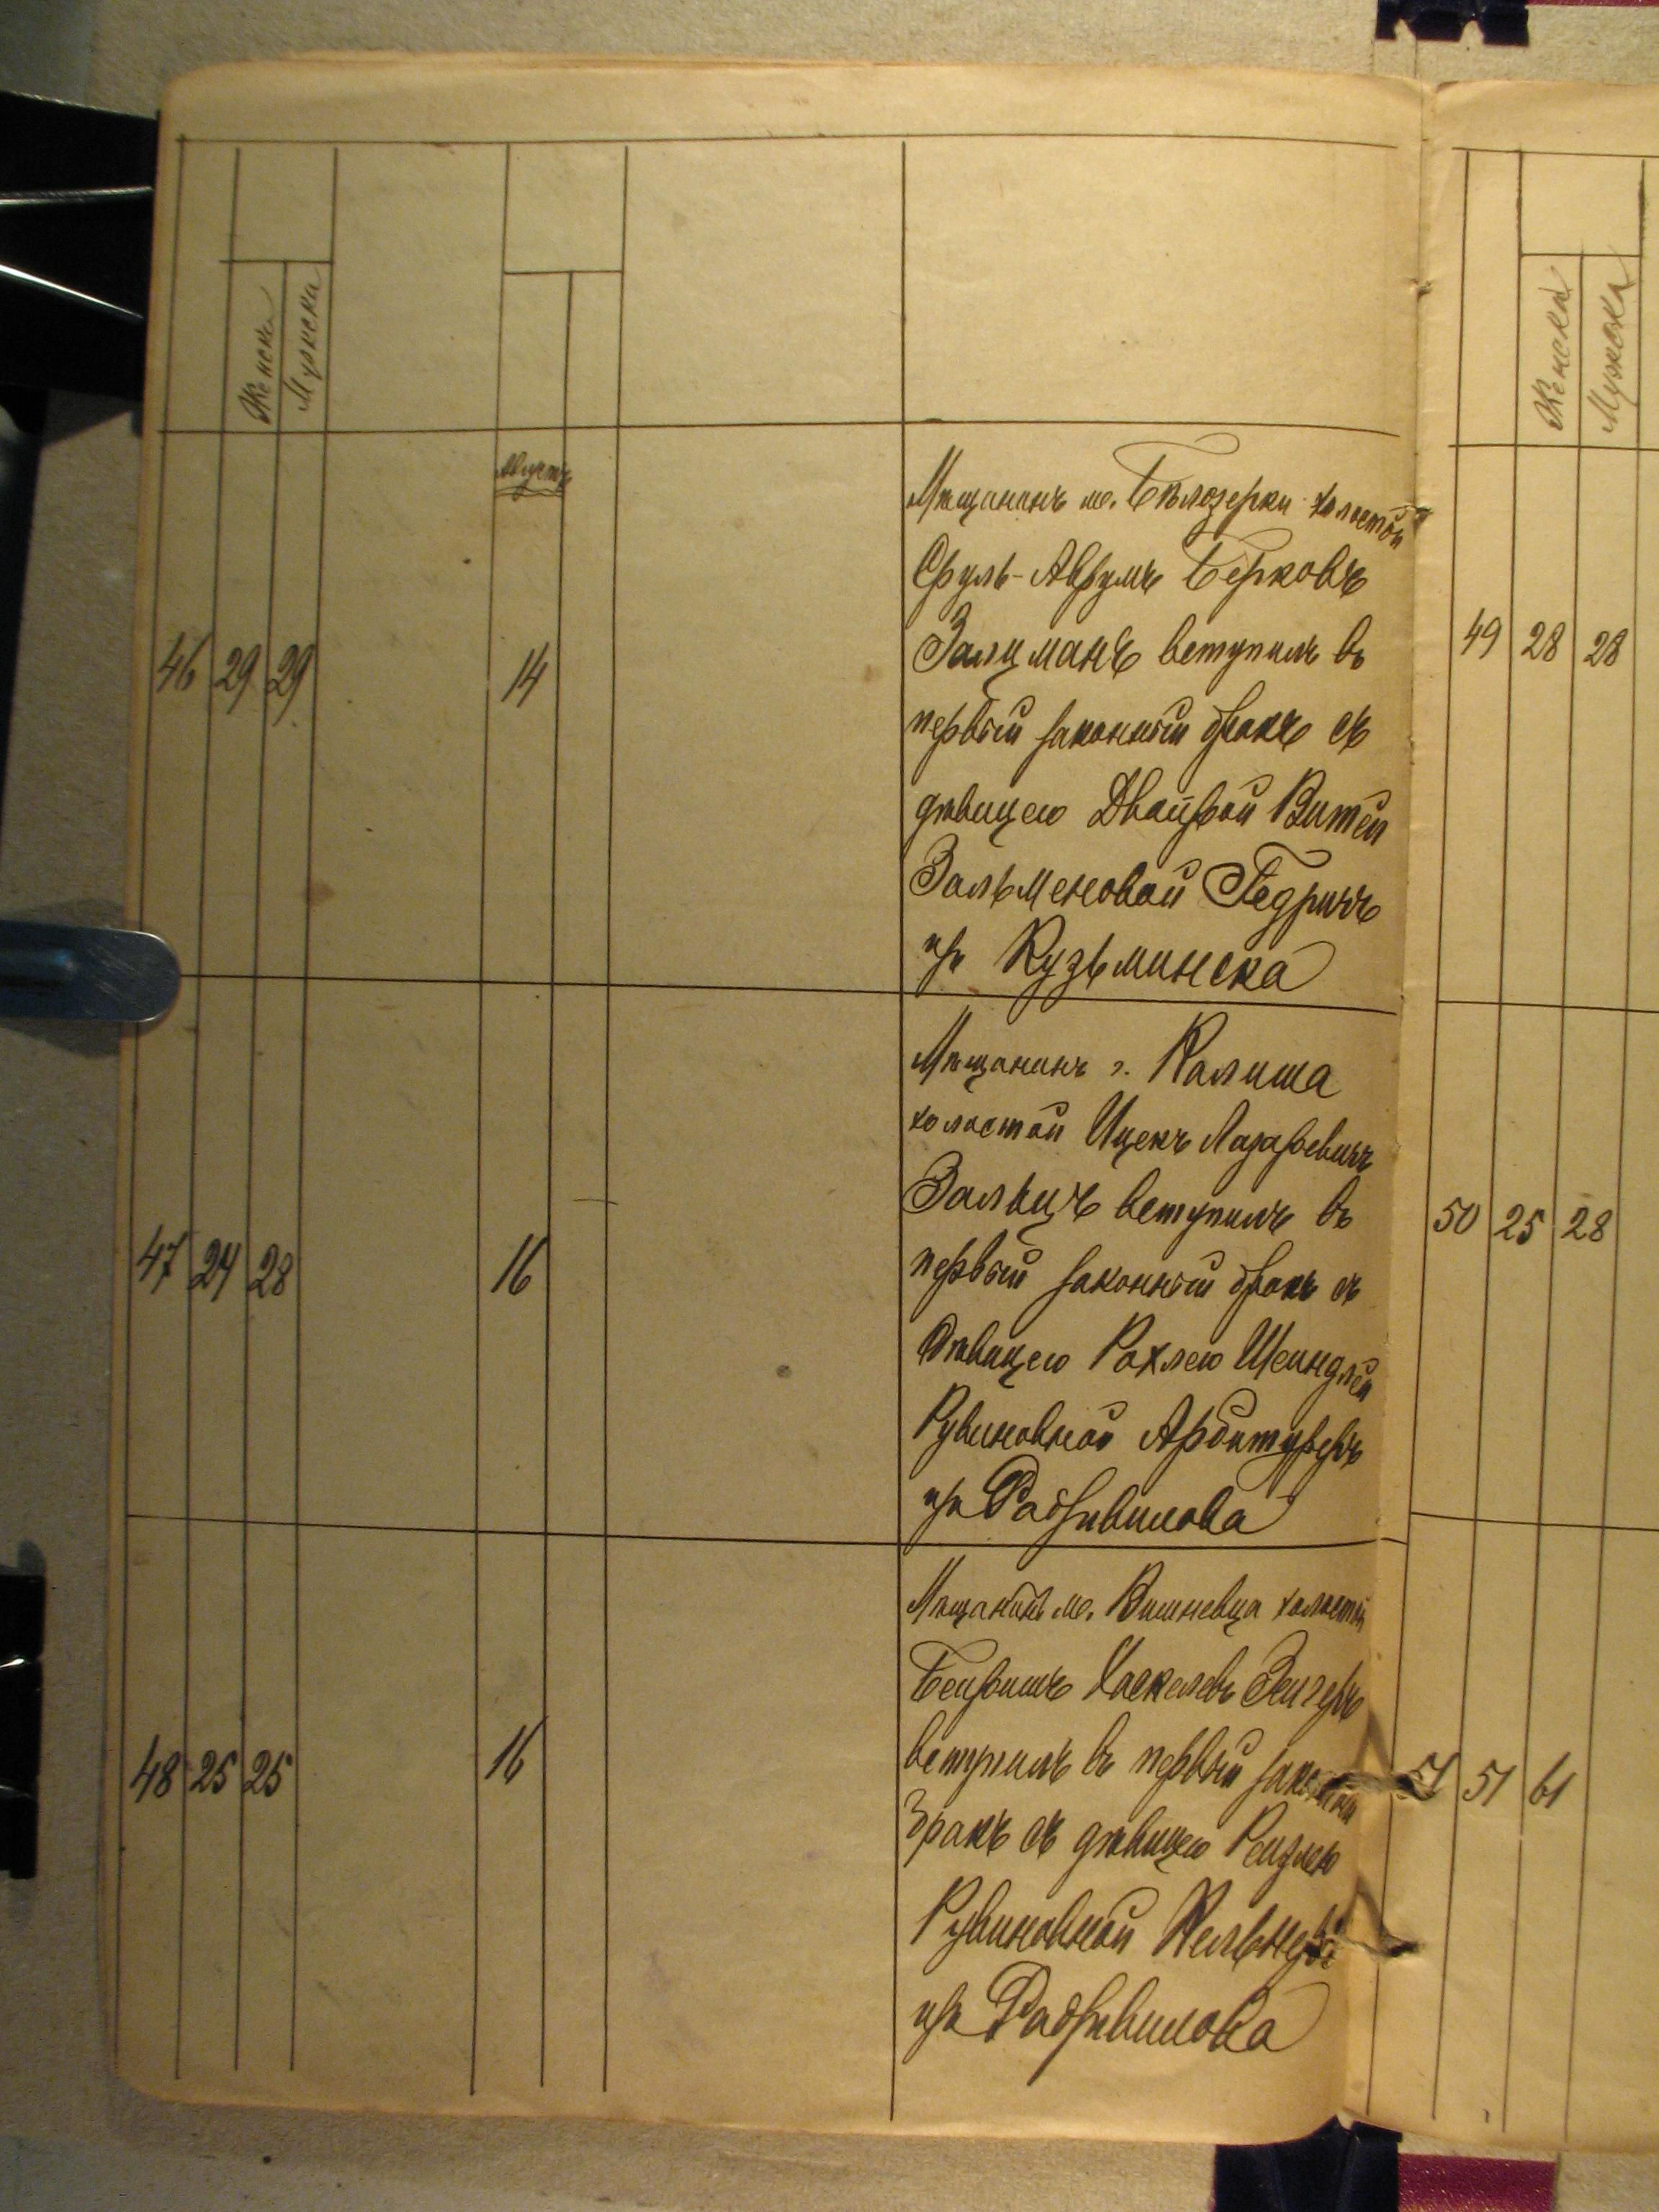 Женска
Мужска
Августъ
46 29 29 14
Мѣщанинъ м. Бѣлозерки холостой
Сруль-Аврумъ Берковъ
Залцманъ вступилъ въ
первый законный бракъ съ
дѣвицею Двойрой Витей
Зальменовой Гедричъ
изъ Кузьминска
47 24 28 16
Мѣщанинъ г. Калиша
холостой Ицекъ Лазаревичъ
Зальцъ вступилъ въ
первый законный бракъ съ
дѣвицею Рохлею Шеиндлей
Рувиновной Арбитуръ
изъ Радзивилова
48 25 25 16
Мѣщанинъ м. Вишневца холостой
Беиришъ Хаскелевъ Зейгеръ
вступилъ въ первый законный
бракъ съ дѣвицею Реизлею
Рувиновной
изъ Радзивилова
Женска
Мужска
49 28 28
50 25 28
51 51 61